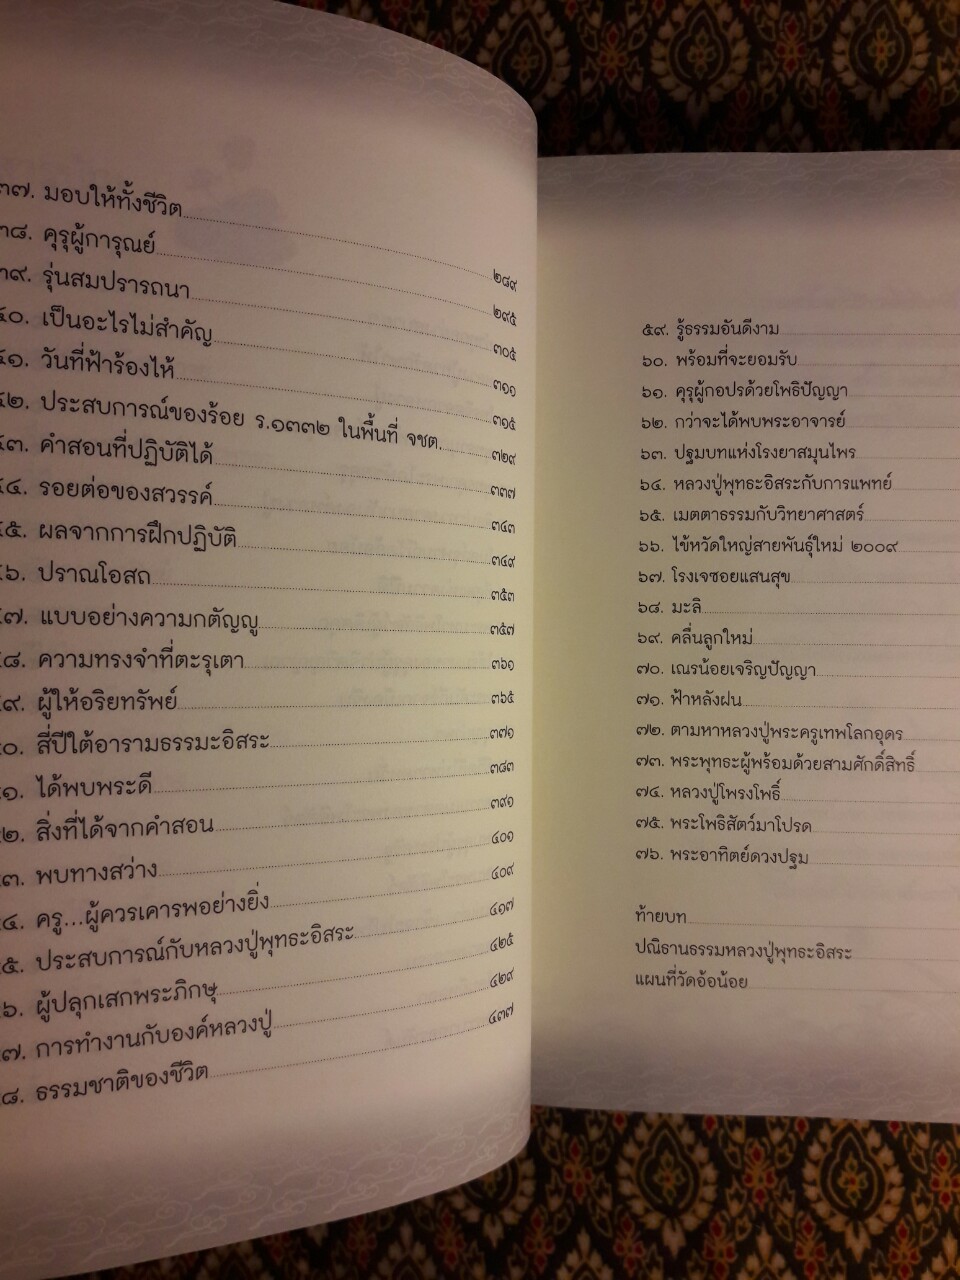 ๓๗. มอบให้ทั้งชีวิต ๒๘๙
๓๘. คุรุผู้การุณย์ ๒๙๕
๓๙. รุ่นสมปรารถนา ๓๐๕
๔๐. เป็นอะไรไม่สำคัญ ๓๑๑
๔๑. วันที่ฟ้าร้องไห้ ๓๑๕
๔๒. ประสบการณ์ของร้อย ร.๑๓๓๒ ในพื้นที่ จชต. ๓๒๙
๔๓. คำสอนที่ปฏิบัติได้ ๓๓๗
๔๔. รอยต่อของสวรรค์ ๓๔๓
๔๕. ผลจากการฝึกปฏิบัติ ๓๔๙
๔๖. ปราณโอสถ ๓๕๓
๔๗. แบบอย่างความกตัญญู ๓๕๗
๔๘. ความทรงจำที่ตะรุเตา ๓๖๑
๔๙. ผู้ให้อริยทรัพย์ ๓๖๕
๕๐. สี่ปีใต้อารามธรรมะอิสระ ๓๗๑
๕๑. ได้พบพระดี ๓๘๓
๕๒. สิ่งที่ได้จากคำสอน ๓๙๑
๕๓. พบทางสว่าง ๔๐๑
๕๔. ครู...ผู้ควรเคารพอย่างยิ่ง ๔๐๙
๕๕. ประสบการณ์กับหลวงปู่พุทธะอิสระ ๔๑๗
๕๖. ผู้ปลุกเสกพระภิกษุ ๔๒๕
๕๗. การทำงานกับองค์หลวงปู่ ๔๒๙
๕๘. ธรรมชาติของชีวิต ๔๓๗
๕๙. รู้ธรรมอันดีงาม
๖๐. พร้อมที่จะยอมรับ
๖๑. คุรุผู้กอปรด้วยโพธิปัญญา
๖๒. กว่าจะได้พบพระอาจารย์
๖๓. ปฐมบทแห่งโรงยาสมุนไพร
๖๔. หลวงปู่พุทธะอิสระกับการแพทย์
๖๕. เมตตาธรรมกับวิทยาศาสตร์
๖๖. ไข้หวัดใหญ่สายพันธุ์ใหม่ ๒๐๐๙
๖๗. โรงเจซอยแสนสุข
๖๘. มะลิ
๖๙. คลื่นลูกใหม่
๗๐. เณรน้อยเจริญปัญญา
๗๑. ฟ้าหลังฝน
๗๒. ตามหาหลวงปู่พระครูเทพโลกอุดร
๗๓. พระพุทธะผู้พร้อมด้วยสามศักดิ์สิทธิ์
๗๔. หลวงปู่โพรงโพธิ์
๗๕. พระโพธิสัตว์มาโปรด
๗๖. พระอาทิตย์ดวงปฐม
ท้ายบท
ปณิธานธรรมหลวงปู่พุทธะอิสระ
แผนที่วัดอ้อน้อย